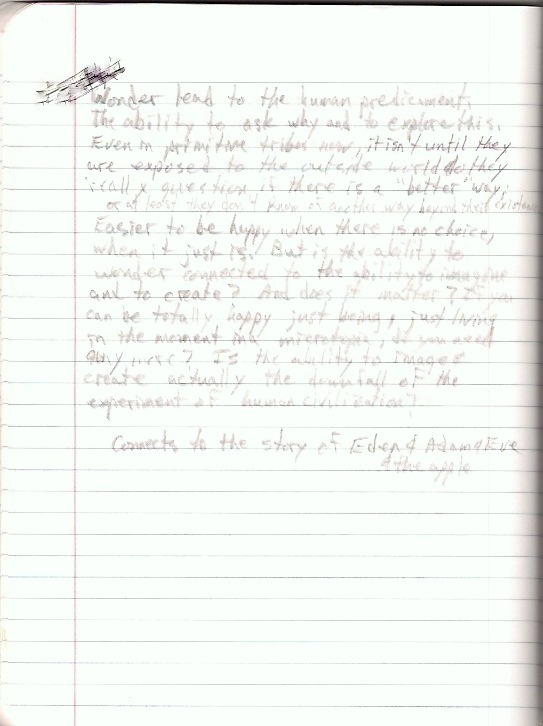 Wonder lead to the human predicament.
The ability to ask why and to explore this.
Even in primitive tribes now, it isn't until they
are exposed to the outside world do they
really question if there is a "better" way;
or at least they don't know of another way beyond their existence
Easier to be happy when there is no choice,
when it just is. But is the ability to
wonder connected to the ability to imagine
and to create? And does it matter? If you
can be totally happy just being, just living
in the moment in a microtopia, do you need
any more? Is the ability to image &
create actually the downfall of the
experiment of human civilization?
Connects to the story of Eden & Adam & Eve
& the apple